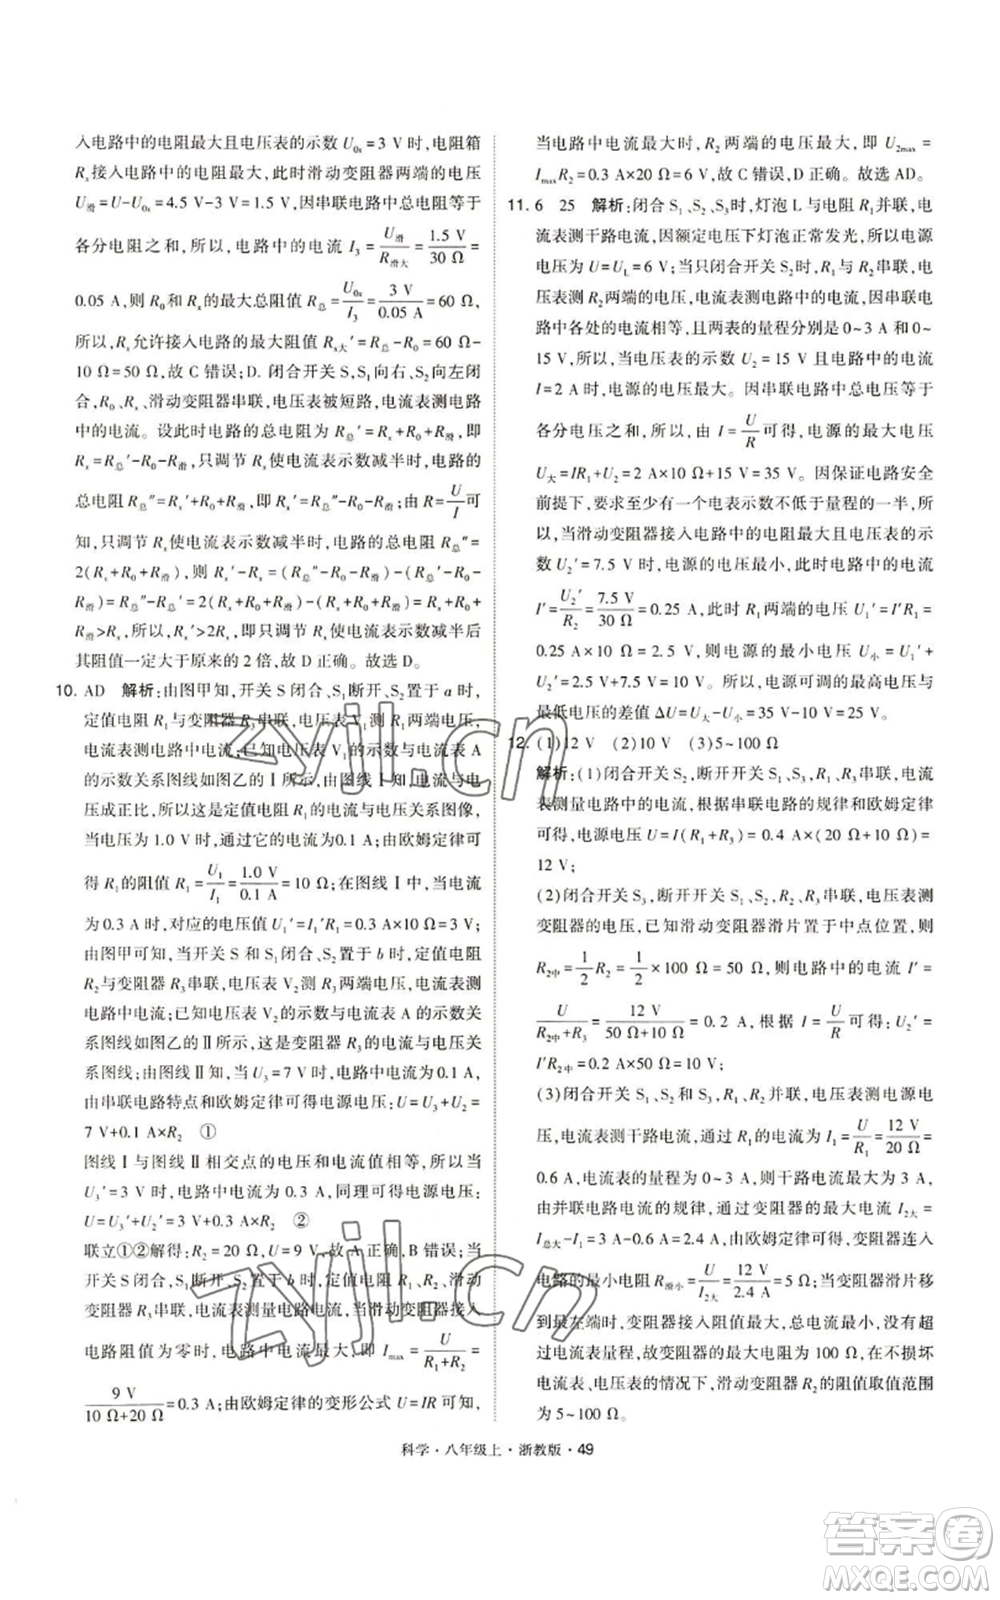 入电路中的电阻最大且电压表的示数 U₀ₓ=3 V时,电阻箱
Rₓ接入电路中的电阻最大,此时滑动变阻器两端的电压
U滑=U-U₀ₓ=4.5 V-3 V=1.5 V,因串联电路中总电阻等于
各分电阻之和,所以,电路中的电流 I₃=U滑/R滑大=1.5 V/30 Ω=
0.05 A,则 R₀和 Rₓ的最大总阻值 R总=U₀ₓ/I₃=3 V/0.05 A=60 Ω,
所以,Rₓ允许接入电路的最大阻值 Rₓ大′=R总-R₀=60 Ω-
10 Ω=50 Ω,故 C 错误;D. 闭合开关 S,S₁向右、S₂向左闭
合,R₀、Rₓ、滑动变阻器串联,电压表被短路,电流表测电路
中的电流。设此时电路的总电阻为 R总′=Rₓ+R₀+R滑,即
Rₓ=R总′-R₀-R滑,只调节 Rₓ使电流表示数减半时,电路的
总电阻 R总″=Rₓ′+R₀+R滑,即 Rₓ′=R总″-R₀-R滑;由 R=U/I可
知,只调节 Rₓ使电流表示数减半时,电路的总电阻 R总″=
2(Rₓ+R₀+R滑),则 Rₓ′=R总″-R₀-R滑=2(Rₓ+R₀+R滑)-R₀-
R滑=Rₓ+R₀+R滑,Rₓ′-2Rₓ=2(Rₓ+R₀+R滑)-(Rₓ+R₀+R滑)=Rₓ+R₀+
R滑>Rₓ,所以,Rₓ′>2Rₓ,即只调节 Rₓ使电流表示数减半后
其阻值一定大于原来的 2 倍,故 D 正确。故选 D。
10. AD 解析:由图甲知,开关 S 闭合、S₁断开、S₂置于 a 时,
定值电阻 R₁与变阻器 R₃串联,电压表 V₁测 R₁两端电压,
电流表测电路中电流;已知电压表 V₁的示数与电流表 A
的示数关系图线如图乙的Ⅰ所示,图线Ⅰ知,电流与电
压成正比,所以这是定值电阻 R₁的电流与电压关系图像,
当电压为 1.0 V 时,通过它的电流为0.1 A,由欧姆定律可
得 R₁的阻值 R₁=U₁/I₁=1.0 V/0.1 A=10 Ω;在图线Ⅰ中,当电流
为 0.3 A 时,对应的电压值 U₁′=I₁′R₁=0.3 A×10 Ω=3 V;
由图甲可知,当开关 S 和 S₁闭合、S₂置于 b 时,定值电阻
R₂与变阻器 R₃串联,电压表 V₂测 R₃两端电压,电流表测
电路中电流;已知电压表 V₂的示数与电流表 A 的示数关
系图线如图乙的Ⅱ所示,这是变阻器 R₃的电流与电压关
系图线;由图线Ⅱ知,当 U₃=7 V 时,电路中电流为 0.1 A,
由串联电路特点和欧姆定律可得电源电压:U=U₃+U₂=
7 V+0.1 A×R₂ ①
图线Ⅰ与图线Ⅱ相交点的电压和电流值相等,所以当
U₃′=3 V 时,电路中电流为 0.3 A,同理可得电源电压:
U=U₃′+U₂′=3 V+0.3 A×R₂ ②
联立①②解得:R₂=20 Ω,U=9 V,故 A 正确,B 错误;当
开关 S 闭合,S₁断开、S₂置于 b 时,定值电阻 R₂、R₁、滑动
变阻器 R₃串联,电流表测量电路电流,当滑动变阻器接入
电路阻值为零时,电路中电流最大,即 Iₘₐₓ=U/(R₁+R₂)=
9 V/(10 Ω+20 Ω)=0.3 A;由欧姆定律的变形公式 U=IR 可知,
当电路中电流最大时,R₂两端的电压最大,即 U₂ₘₐₓ=
IₘₐₓR₂=0.3 A×20 Ω=6 V,故 C 错误,D 正确。故选 AD。
11. 6 25 解析:闭合 S₁、S₂、S₃时,灯泡 L 与电阻 R₁并联,电
流表测干路电流,因额定电压下灯泡正常发光,所以电源
电压为 U=U_L=6 V;当只闭合开关 S₂时,R₁与 R₂串联,电
压表测 R₂两端的电压,电流表测电路中的电流,因串联电
路中各处的电流相等,且两表的量程分别是 0~3 A 和 0~
15 V,所以,当电压表的示数 U₂=15 V 且电路中的电流
I=2 A 时,电源的电压最大。因串联电路中总电压等于
各分电压之和,所以,由 I=U/R可得,电源的最大电压
U大=IR₁+U₂=2 A×10 Ω+15 V=35 V。因保证电路安全
前提下,要求至少有一个电表示数不低于量程的一半,所
以,当滑动变阻器接入电路中的电阻最大且电压表的示
数 U₂′=7.5 V 时,电源的电压最小,此时电路中的电流
I′=U₂′/R₂=7.5 V/30 Ω=0.25 A,此时 R₁两端的电压 U₁′=I′R₁=
0.25 A×10 Ω=2.5 V,则电源的最小电压 U小=U₁′+
U₂′=2.5 V+7.5 V=10 V,则电源可调的最高电压与
最低电压的差值 ΔU=U大-U小=35 V-10 V=25 V。
12. (1)12 V (2)10 V (3)5~100 Ω
解析:(1)闭合开关 S₂,断开开关 S₁、S₃,R₁、R₃串联,电流
表测量电路中的电流,根据串联电路的规律和欧姆定律可
得,电源电压 U=I(R₁+R₃)=0.4 A×(20 Ω+10 Ω)=
12 V;
(2)闭合开关 S₃,断开开关 S₁、S₂,R₂、R₃串联,电压表测
变阻器的电压,已知滑动变阻器滑片置于中点位置,则
R₂中=1/2R₂=1/2×100 Ω=50 Ω,则电路中的电流 I′=
U/(R₂中+R₃)=12 V/(50 Ω+10 Ω)=0.2 A,根据 I=U/R可得:U₂′=
I′R₂中=0.2 A×50 Ω=10 V;
(3)闭合开关 S₁、S₂和 S₃,R₁和 R₂并联,电压表测电源电
压,电流表测干路电流,通过 R₁的电流为 I₁=U/R₁=12 V/20 Ω=
0.6 A,电流表的量程为 0~3 A,则干路电流最大为 3 A,
由并联电路电流的规律,通过变阻器的最大电流 I₂大=
I总大-I₁=3 A-0.6 A=2.4 A,由欧姆定律,变阻器连入
电路的最小电阻 R滑小=U/I₂大=12 V/2.4 A=5 Ω;当变阻器滑片移
到最左端时,变阻器接入阻值最大,总电流最小,不会超
过电流表量程,故变阻器的最大阻值为 100 Ω,在不损坏
电流表的情况下,滑动变阻器 R₂的阻值取值范围
为 5~100 Ω。
科学·八年级上·浙教版·49
zyjl.cn
zyjl.cn
答案圈
MXQE.COM